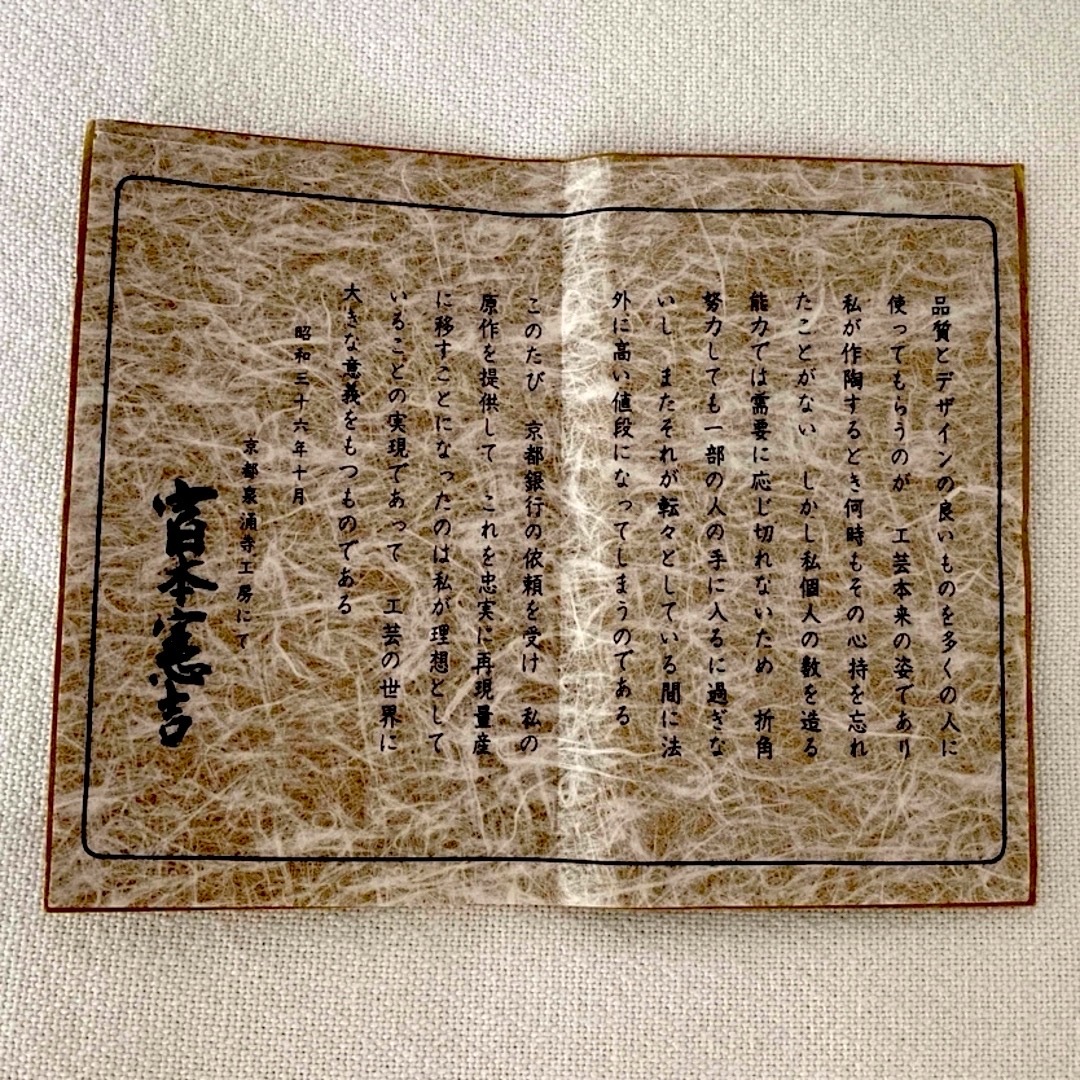 品質とデザインの良いものを多くの人に
使ってもらうのが　工芸本来の姿であり
私が作陶するとき何時もその心持を忘れ
たことがない　しかし私個人の数を造る
能力では需要に応じ切れないため　折角
努力しても一部の人の手に入るに過ぎな
いし　またそれが転々としている間に法
外に高い値段になってしまうのである
このたび　京都銀行の依頼を受け　私の
原作を提供して　これを忠実に再現量産
に移すことになったのは私が理想として
いることの実現であって　工芸の世界に
大きな意義をもつものである
昭和三十六年十月
京都泉涌寺工房にて
富本憲吉